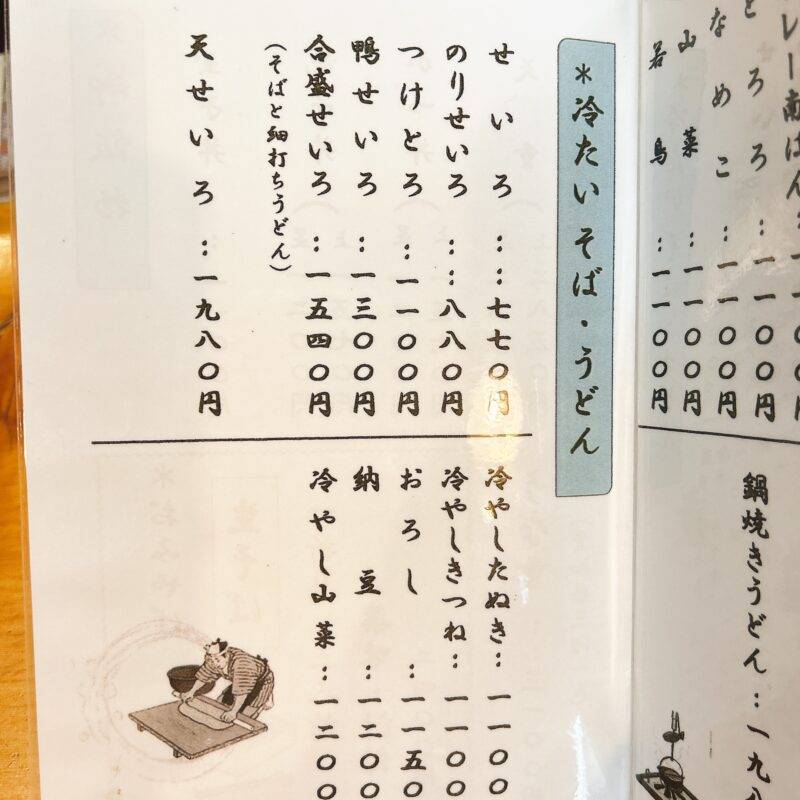 レー南ばん
とろろ：一一〇〇円
なめこ：一一〇〇円
山菜：一一〇〇円
若鳥：一一〇〇円
鍋焼きうどん：一九八
＊冷たいそば・うどん
せいろ：：七七〇円
のりせいろ：：八八〇円
つけとろ：一一〇〇円
鴨せいろ：一三〇〇円
合盛せいろ：一五四〇円
（そばと細打ちうどん）
天せいろ：一九八〇円
冷やしたぬき：一一〇〇
冷やしきつね：一一〇〇
おろし：一一五〇
納豆：一二〇〇
冷やし山菜：一二〇〇